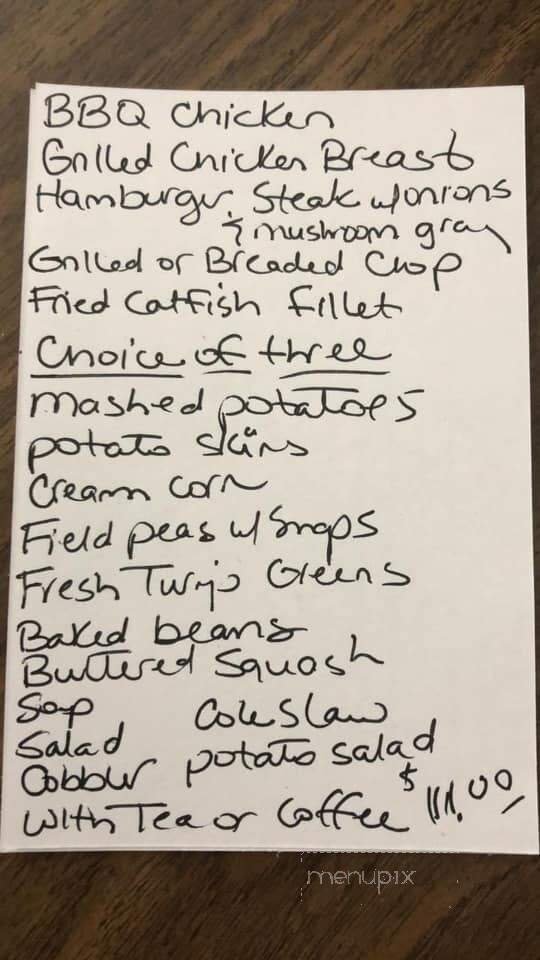 BBQ Chicken
Grilled Chicken Breast
Hamburger Steak w/onions
& mushroom gray
Grilled or Breaded Chop
Fried Catfish fillet
Choice of three
mashed potatoes
potato skins
Cream corn
Field peas w/ Snaps
Fresh Turnip Greens
Baked beans
Buttered Squash
Soup Cole Slaw
Salad
Cobbler potato salad
with Tea or Coffee $
menupix